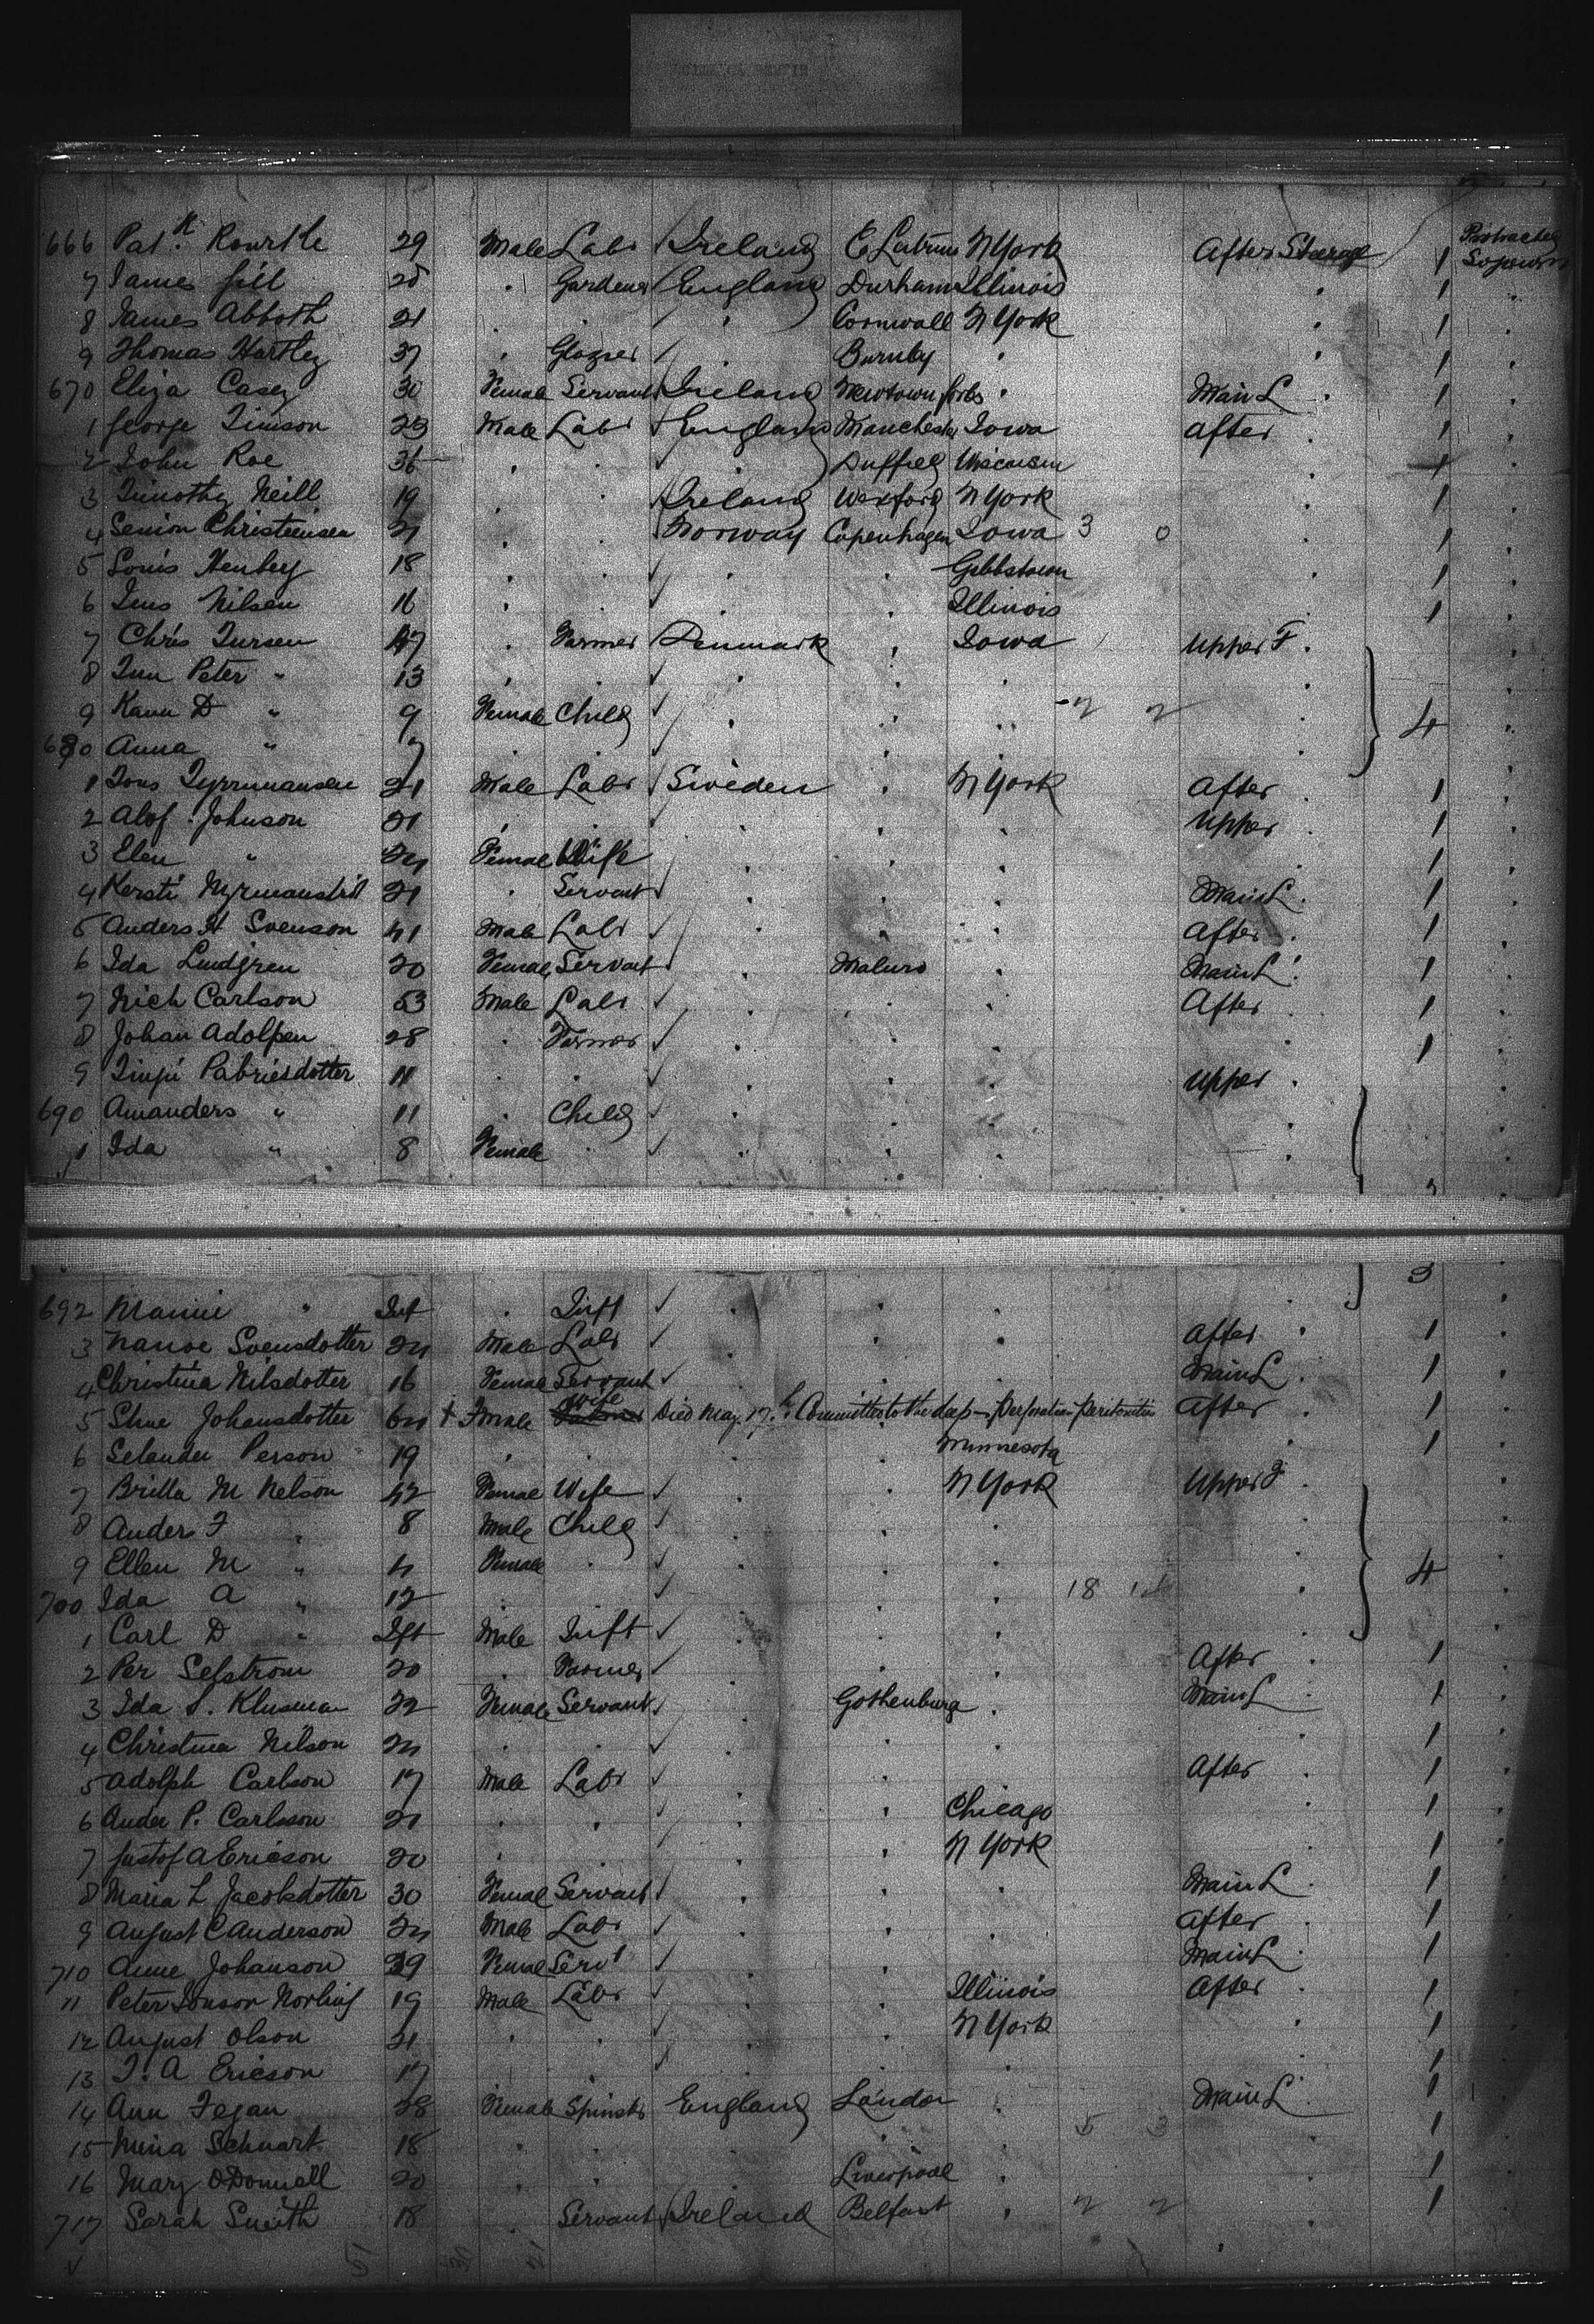 666 Patk. Rourke 29 Male Labr Ireland E Latrim N York After Steerage 1 Protracted Sojourn
7 James Gill 25 " Gardener England Durham Illinois " 1 "
8 James Abboth 21 " " " Cornwall N York " 1 "
9 Thomas Hartley 37 " Glazier " Burnby " " 1 "
670 Eliza Casey 30 Female Servant Ireland Newtownforbs " Main L " 1 "
1 George Timson 23 Male Labr England Manchester Iowa After " 1 "
2 John Roe 36 " " " Duffield Wisconsin " 1 "
3 Timothy Neill 19 " " Ireland Wexford N York " 1 "
4 Christensen 21 " " Norway Copenhagen Iowa 3 0 " 1 "
5 Louis Henbey 18 " " " " Gibbstown " 1 "
6 Jens Nilsen 16 " " " " Illinois " 1 "
7 Chris Jursen 47 " Farmer Denmark " Iowa Upper F "
8 Peter " 13 " " " " " "
9 Karen D " 9 Female Child " " " 2 2 " 4 "
680 Anna " 7 " " " " " " "
1 21 Male Labr Sweden " N York After " 1 "
2 Alof Johnson 21 " " " " " Upper " 1 "
3 Elen " 24 Female Wife " " " " 1 "
4 Kersti 21 " Servant " " " Main L " 1 "
5 Anders H Svenson 41 Male Labr " " " After " 1 "
6 Ida Lindgren 20 Female Servant " Malmo " Main L " 1 "
7 Nich Carlson 53 Male Labr " " " After " 1 "
8 Johan Adolpen 28 " Farmer " " " " 1 "
9 Pabriesdotter 11 " " " " " Upper " "
690 Amanders " 11 " Child " " " " "
1 Ida " 8 Female " " " " " "
3
692 " Inf " Inft " " " " 3 "
3 Svensdotter 24 Male Labr " " " After " 1 "
4 Christina Nilsdotter 16 Female Servant " " " Main L " 1 "
5 Johansdotter 64 + Female Wife Died May. 17th Committed to the deep - Perforation peritonitis After " "
6 Selander Person 19 " " " " Minnesota " 1 "
7 Brilla M Nelson 42 Female Wife " " N York Upper F "
8 Ander F " 8 Male Child " " " " "
9 Ellen M " 4 Female " " " " " 4 "
700 Ida A " 12 " " " " " 18 " "
1 Carl D " Ift Male Inft " " " " "
2 Per Selstrom 20 " Farmer " " " After " 1 "
3 Ida S. Klusman 22 Female Servant " Gothenburg " Main L " 1 "
4 Christina Nilson 24 " " " " " " 1 "
5 Adolph Carlson 17 Male Labr " " " After " 1 "
6 Ander P. Carlsson 21 " " " " Chicago " 1 "
7 Gustof A Ericson 20 " " " " N York " 1 "
8 Maria L Jacobsdotter 30 Female Servant " " " Main L " 1 "
9 August C Anderson 24 Male Labr " " " After " 1 "
710 Anne Johanson 39 Female Servt " " " Main L " 1 "
11 Peter Jonson Norling 19 Male Labr " " Illinois After " 1 "
12 August Olson 21 " " " " N York " 1 "
13 J. A Ericson 17 " " " " " " 1 "
14 Ann Fegan 28 Female Spinstr England London " Main L " 1 "
15 Mina Schwart 18 " " " " " 5 3 " 1 "
16 Mary O'Donnell 20 " " " Liverpool " " 1 "
717 Sarah Smith 18 " Servant Ireland Belfast " 2 2 " 1 "